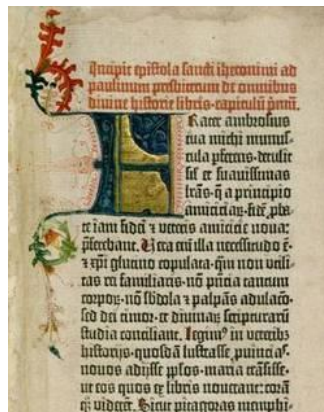 Incipit epistola sancti iheronimi ad
paulinum presbiterum de omnibus
divine historie libris·capitulū pmū.
Frater ambrosius
tua michi munus-
cula pferens·detulit
sił et suauissimas
lrās·q̄ a principio
amiciciaꝝ·fidē pba-
te iam fidei ⁊ veteris amicicie noua:
pferebant. Uera eni illa necessitudo ē·
⁊ xpi glutino copulata·qm non vtili-
tas rei familiaris·nō pntia tantum
corporꝝ·nō sbdola ⁊ palpās adulacō·
sed dei timor·et diuinaꝝ scripturarū
studia conciliant. Legim⁹ in veterib⁹
historijs·quosdā lustrasse·puincias·
nouos adijsse pplos·maria trāsisse·
ut eos quos ex libris nouerant: corā
q̄ viderēt. Sicut pitagoras memphi-